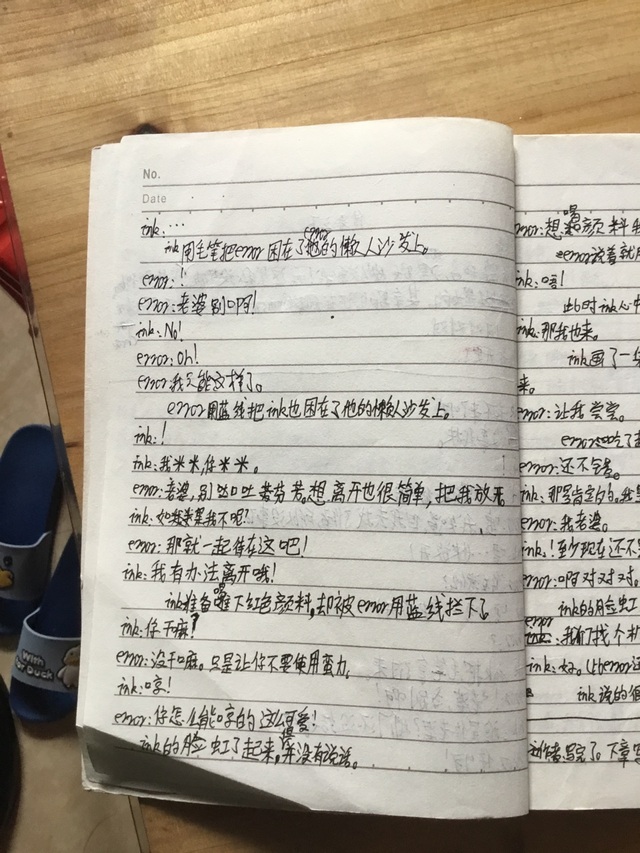 No.
Date
ink:…
ink用毛笔把error困在了error的懒人沙发上。
error:!
error:老婆别啊!
ink:No!
error:Oh!
error:我只能这样了。
error用蓝线把ink也困在了他的懒人沙发上。
ink:!
ink:我米米,住米米。
error:老婆,别 芬芳。想离开也很简单,把我放
ink:如我要是我不呢?
error:那就一起待在这吧!
ink:我有办法离开哦!
ink准备嘬下红色颜料,却被error用蓝线拦下了
ink:你干嘛?
error:没干嘛。只是让你不要使用蛮力。
ink:哼!
error:你怎么能哼的这么可爱!
ink的脸虹了起来,并没有说话。
error:想 颜料
error说着就
ink:唔!
此时ink心中
ink:那我也来。
ink画了一
来。
error:让我尝尝。
error吃了
error:还不错。
ink:那是肯定的。
error:我老婆。
ink:!至少现在还不
error:啊对对对。
ink的脸虹
error:我们找个
ink:好。(
ink说的
写完了。下章
With
Duck